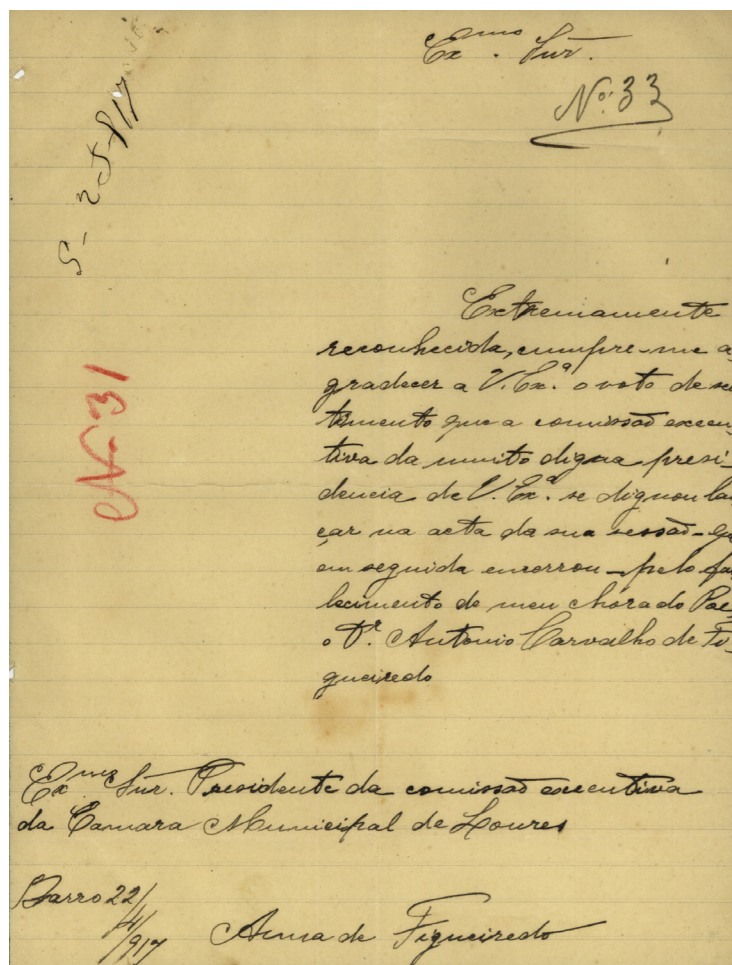 Ex.mo Snr.
Nº 33
5-2-5-917
Nº 31
Extremamente
reconhecida, cumpre-me a
gradecer a V. Ex.ª o voto de sen
timento que a comissão execu
tiva da muito digna presi-
dencia de V. Ex.ª se dignou lan
çar na acta da sua sessão - que
em seguida encerrou - pelo fal
lecimento de meu chorado Pae,
o Dr. Antonio Carvalho de Fi
gueiredo
Ex.mo Snr. Presidente da comissão executiva
da Camara Municipal de Loures
Barro 22/
4/
917 Anna de Figueiredo